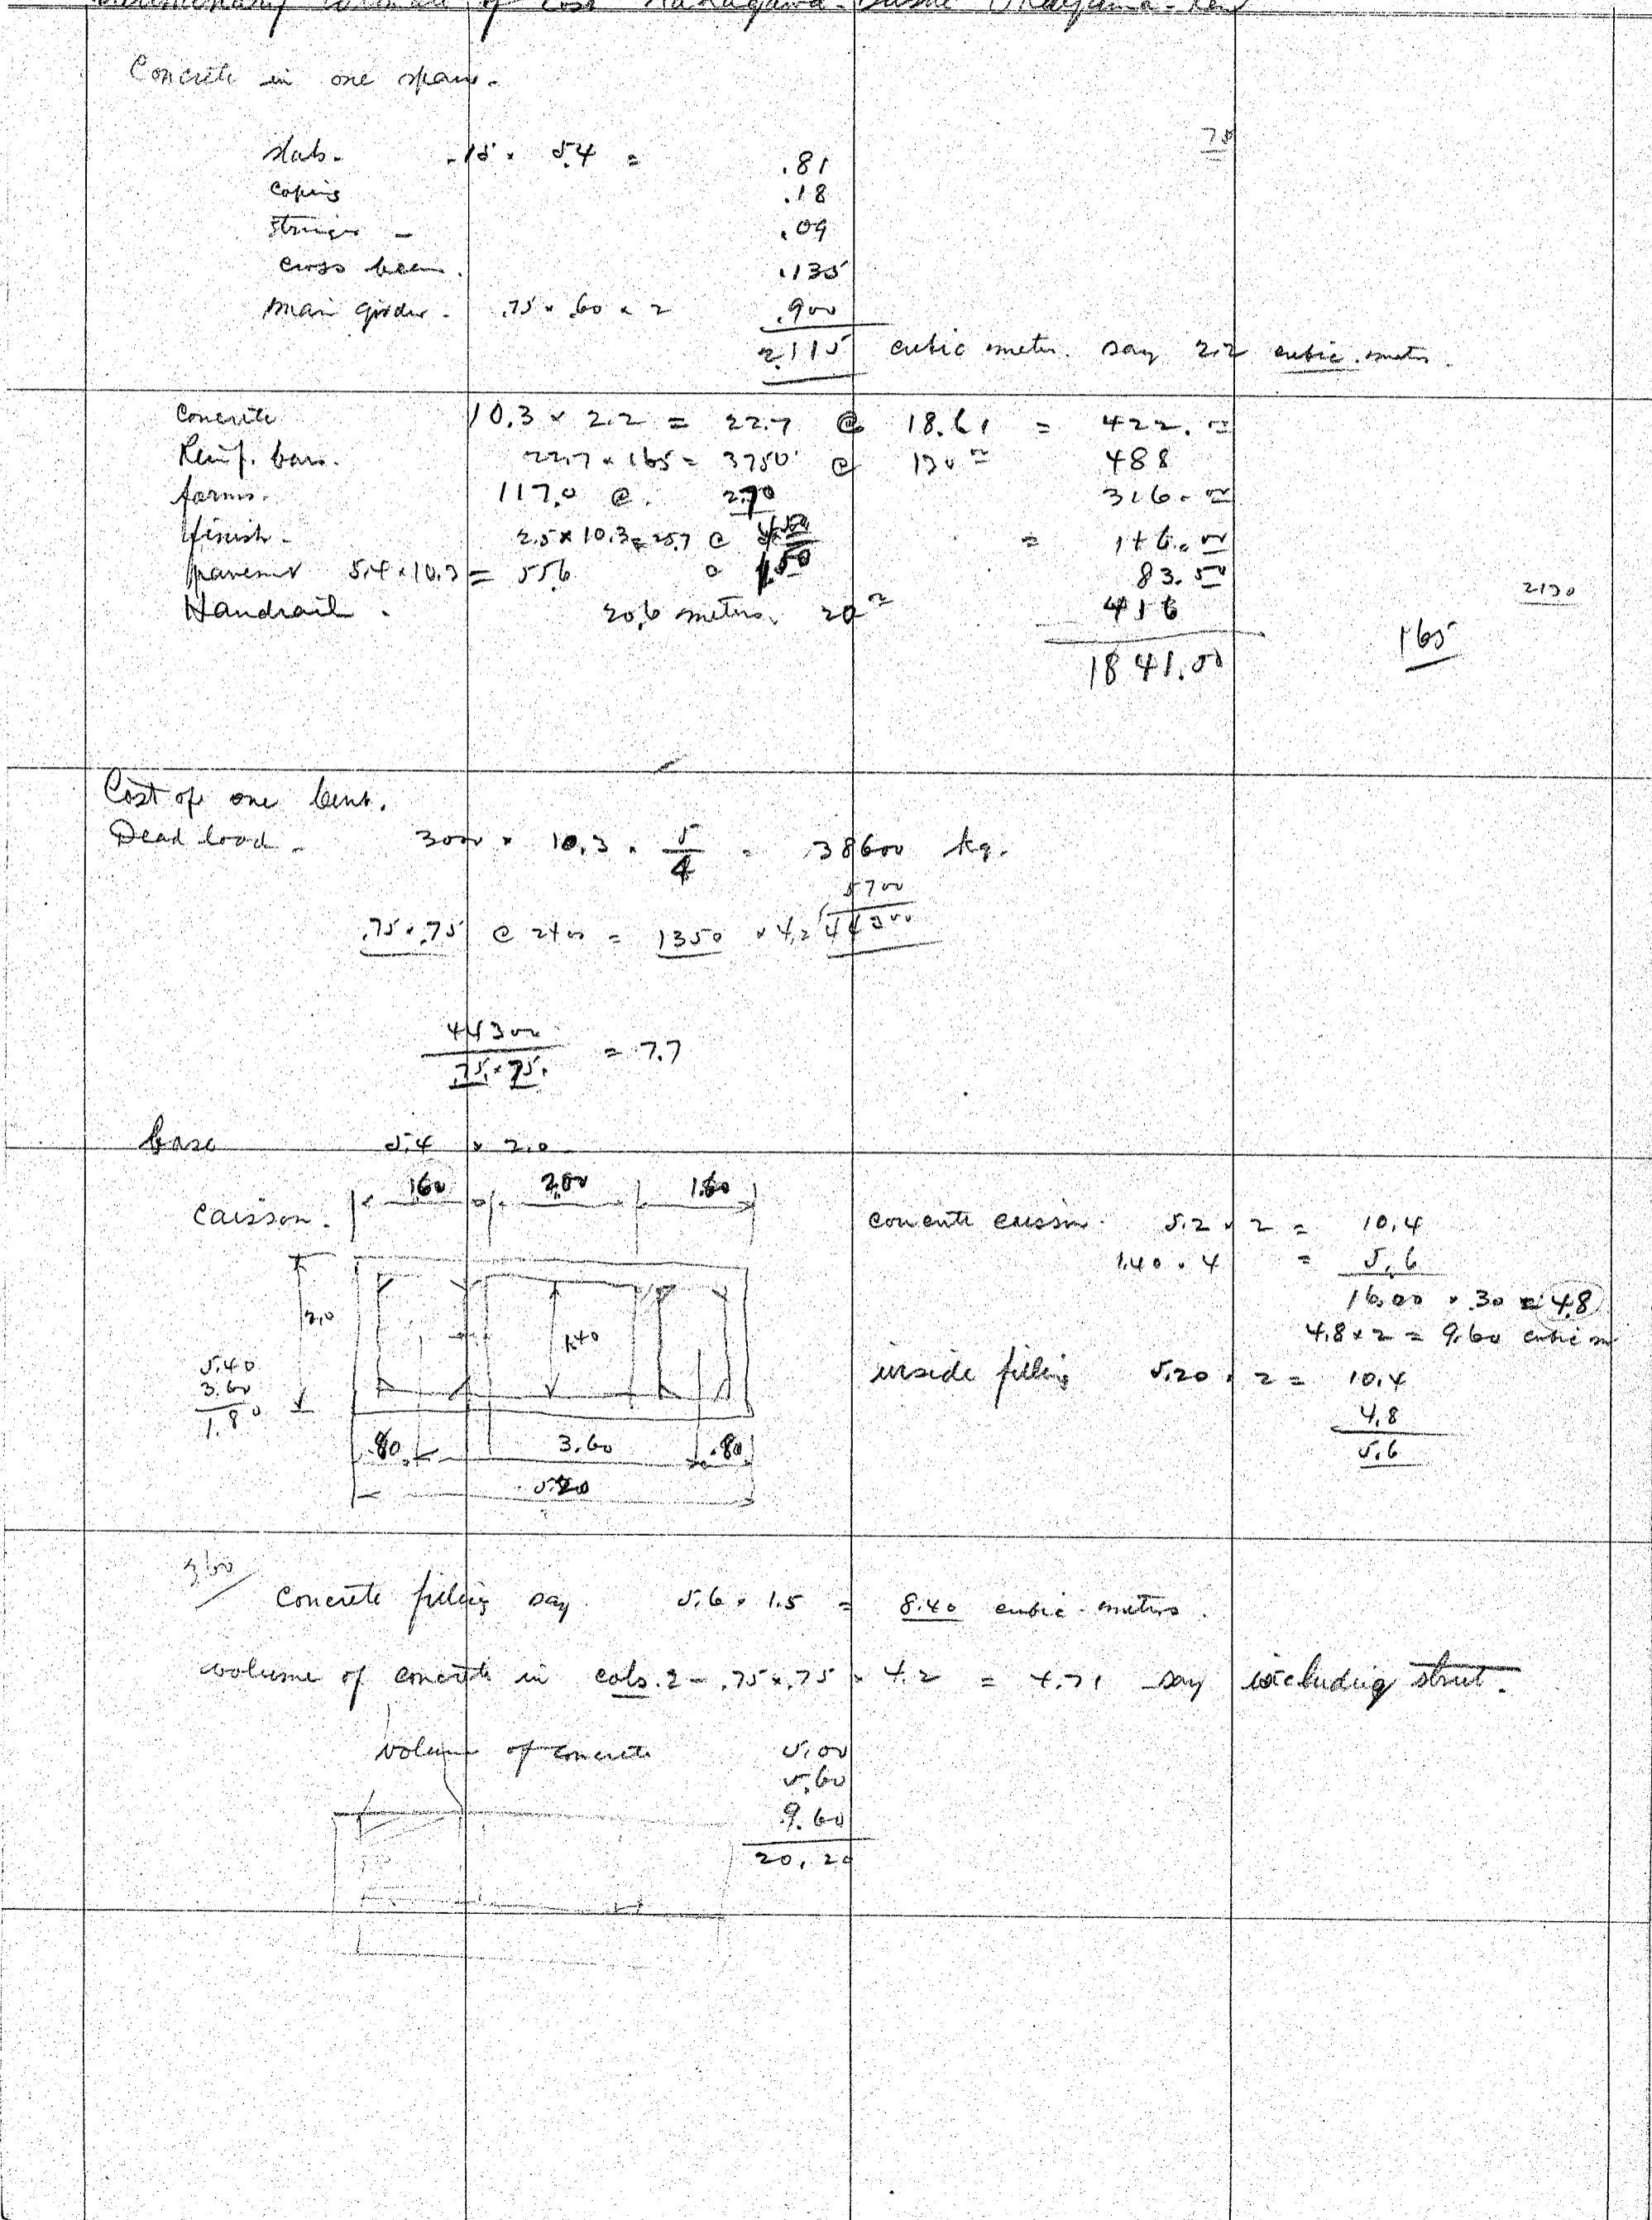 of Cost Okayama-Ken
Concrete in one span.
75
slab. .15 × 5.4 = .81
Coping .18
Stringer - .09
Cross beam. .135
Main girder. .75 × .60 × 2 .900
2.115 cubic meter. say 2.2 cubic meter.
Concrete 10.3 × 2.2 = 22.7 @ 18.61 = 422.00
Reinf. bars. 22.7 × 165 = 3750 @ 130 = 488
forms. 117.0 @ 2.70 316.00
finish. 2.5 × 10.3 = 25.7 @ =
pavement 5.4 × 10.3 = 55.6 @ 1.50 83.50
Handrail. 20.6 meters. 20 00 416
2130
165
1841.50
Cost of one bent.
Dead load - 3000 × 10.3 × 5/4 = 38600 kg.
5700
.75 × .75 @ 2400 = 1350 × 4.2 44300
44300
.75 × 75. = 7.7
base 5.4 × 2.0
1.60 2.00 1.60
Caisson.
2.0
1.40
5.40
3.60
1.80
.80 3.60 .80
5.20
concrete caisson. 5.2 × 2 = 10.4
1.40 × 4 = 5.6
16.00 × .30 = 4.8
4.8 × 2 = 9.60 cubic m
inside filling 5.20 × 2 = 10.4
4.8
5.6
360
Concrete filling say 5.6 × 1.5 = 8.40 cubic meters.
volume of concrete in cols. 2 - .75 × .75 × 4.2 = 4.71 say including strut.
volume of concrete 5.00
5.60
9.60
20.20